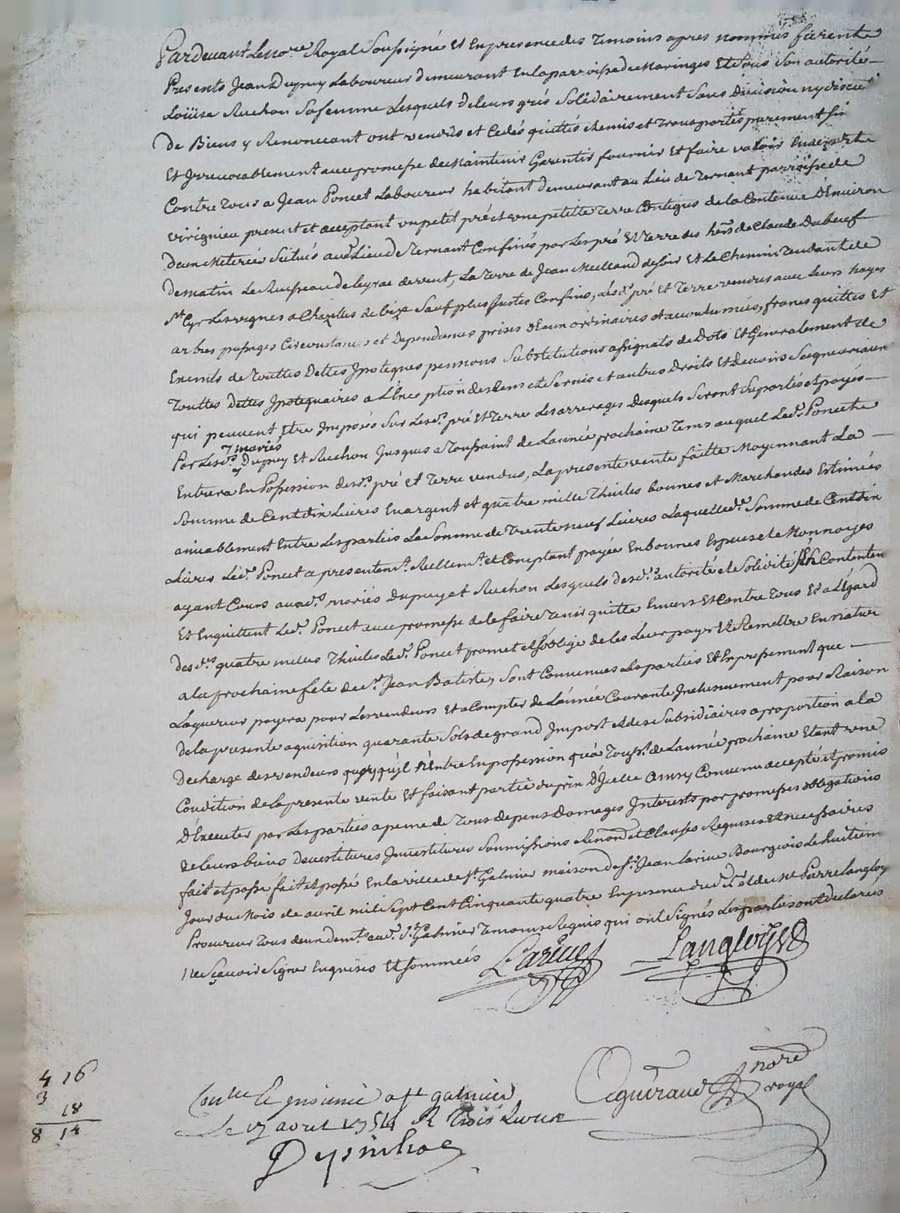 Pardevant Le nore Royal Soussigné Et En presence des Temoins apres nommés furent
Presents Jean Dupuy Laboureur demeurant En la parroisse de Maringes Et sous son autorité
Loüise Ruchon sa femme Lesquels de leurs grés solidairement sans Division ny discution
De Biens y Renoncant ont vendus et Cedés quittés Remis et Transportés purement
Et Irrevocablement avec promesse de Maintenir Garentir fournir Et faire valoir Envers Et
Contre Tous a Jean Poncet Laboureur habitant demeurant au Lieu de Ternant parroisse de
virignieu present et acceptant un petit pré et une petitte Terre Contigus de la Contenue d'Environ
deux Meterée Situés aud. Lieu de Ternant Confinés par Les pré Et Terre des hers. de Claude Dubeuf
de matin Le Ruisseau de de vent, La terre de Jean de soir Et Le Chemin Tendant de
St. Cyr Les vignes a de bize Sauf plus justes Confins, Lesd. pré et Terre vendus avec Leurs hayes
arbres passages Circonstances et Dependances prises d'Eaux ordinaires et accoutumés, francs quittes Et
Exempts de Touttes Dettes Ipoteques pensions Substitutions assignats de Dots Et Generalement de
Touttes Dettes Ipotequaires a L'Exception des Cens et Servis et autres Droits Et Devoirs Seigneuriaux
qui peuvent Etre Imposés Sur Lesd. pré Et Terre Les arrerages Desquels Seront Suportés et payés
mariés
Par Lesd. Dupuy Et Ruchon Jusques a Toussaint de L'année prochaine Tems auquel Led. Poncet
Entrera En possession desd. pré et Terre vendus, La presente vente faitte Moyennant La
Somme de Cent dix Livres En argent et quatre mille Thuiles bonnes et Marchandes Estimées
amiablement Entre Les parties La Somme de Trente neuf Livres Laquelle de. Somme de Cent dix
Livres Led. Poncet a presentemt. Reellemt. et Comptant payée En bonnes Especes et Monnoyes
ayant Cours auxd. mariés Dupuy et Ruchon Lesquels desd. autorité et Solidité s'En Contentent
Et Enquittent Led. Poncet avec promesse de le faire Tenir quitte Envers Et Contre Tous Et a L'Egard
desd. quatre milles Thuiles Led. Poncet promet et s'oblige de les Leur payer Et Remettre En nature
a la prochaine fete de St. Jean Batiste, Sont Convenus Les parties Et Expressement que
Laquereur payera pour Les vendeurs Et a Compter de L'année Courante Inclusivement pour Raison
de la presente aquisition quarante Sols de grand Impost et de Ses Subsidiaires a proportion a la
Decharge des vendeurs quoyqu'il n'Entre En possession qu'a Tousst. de L'année prochaine Etant une
Condition de la presente vente Et faisant partie du prix D'Icelle Ainsy Convenu accepté et promis
d'Executer par Les parties a peine de Tous depens Domages Interests par promesses obligations
de leurs biens Devestitures Investitures Soumissions Renond. et Clauses Requises Et necessaires
fait et passé fait et passé En la ville de St. Galmier maison de Sr. Jean Larive Bourgeois Le huitieme
Jour du Mois de avril mil Sept Cent Cinquante quatre En presence dud. Sr. et de me Pierre Langloy
Procureur Tous deux demts. aud. St. Galmier Temoins Requis qui ont Signés Les parties ont declarés
ne Sçavoir Signer Enquises Et Sommées
Larive
Langloys
nore
royal
416
3
18
8 14
a st galmier
Le avril 1754 R Trois Livres